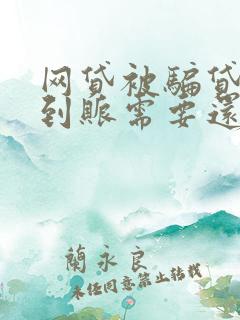 网贷被骗贷
到账需要还
蘭永良
未经同意禁止转载